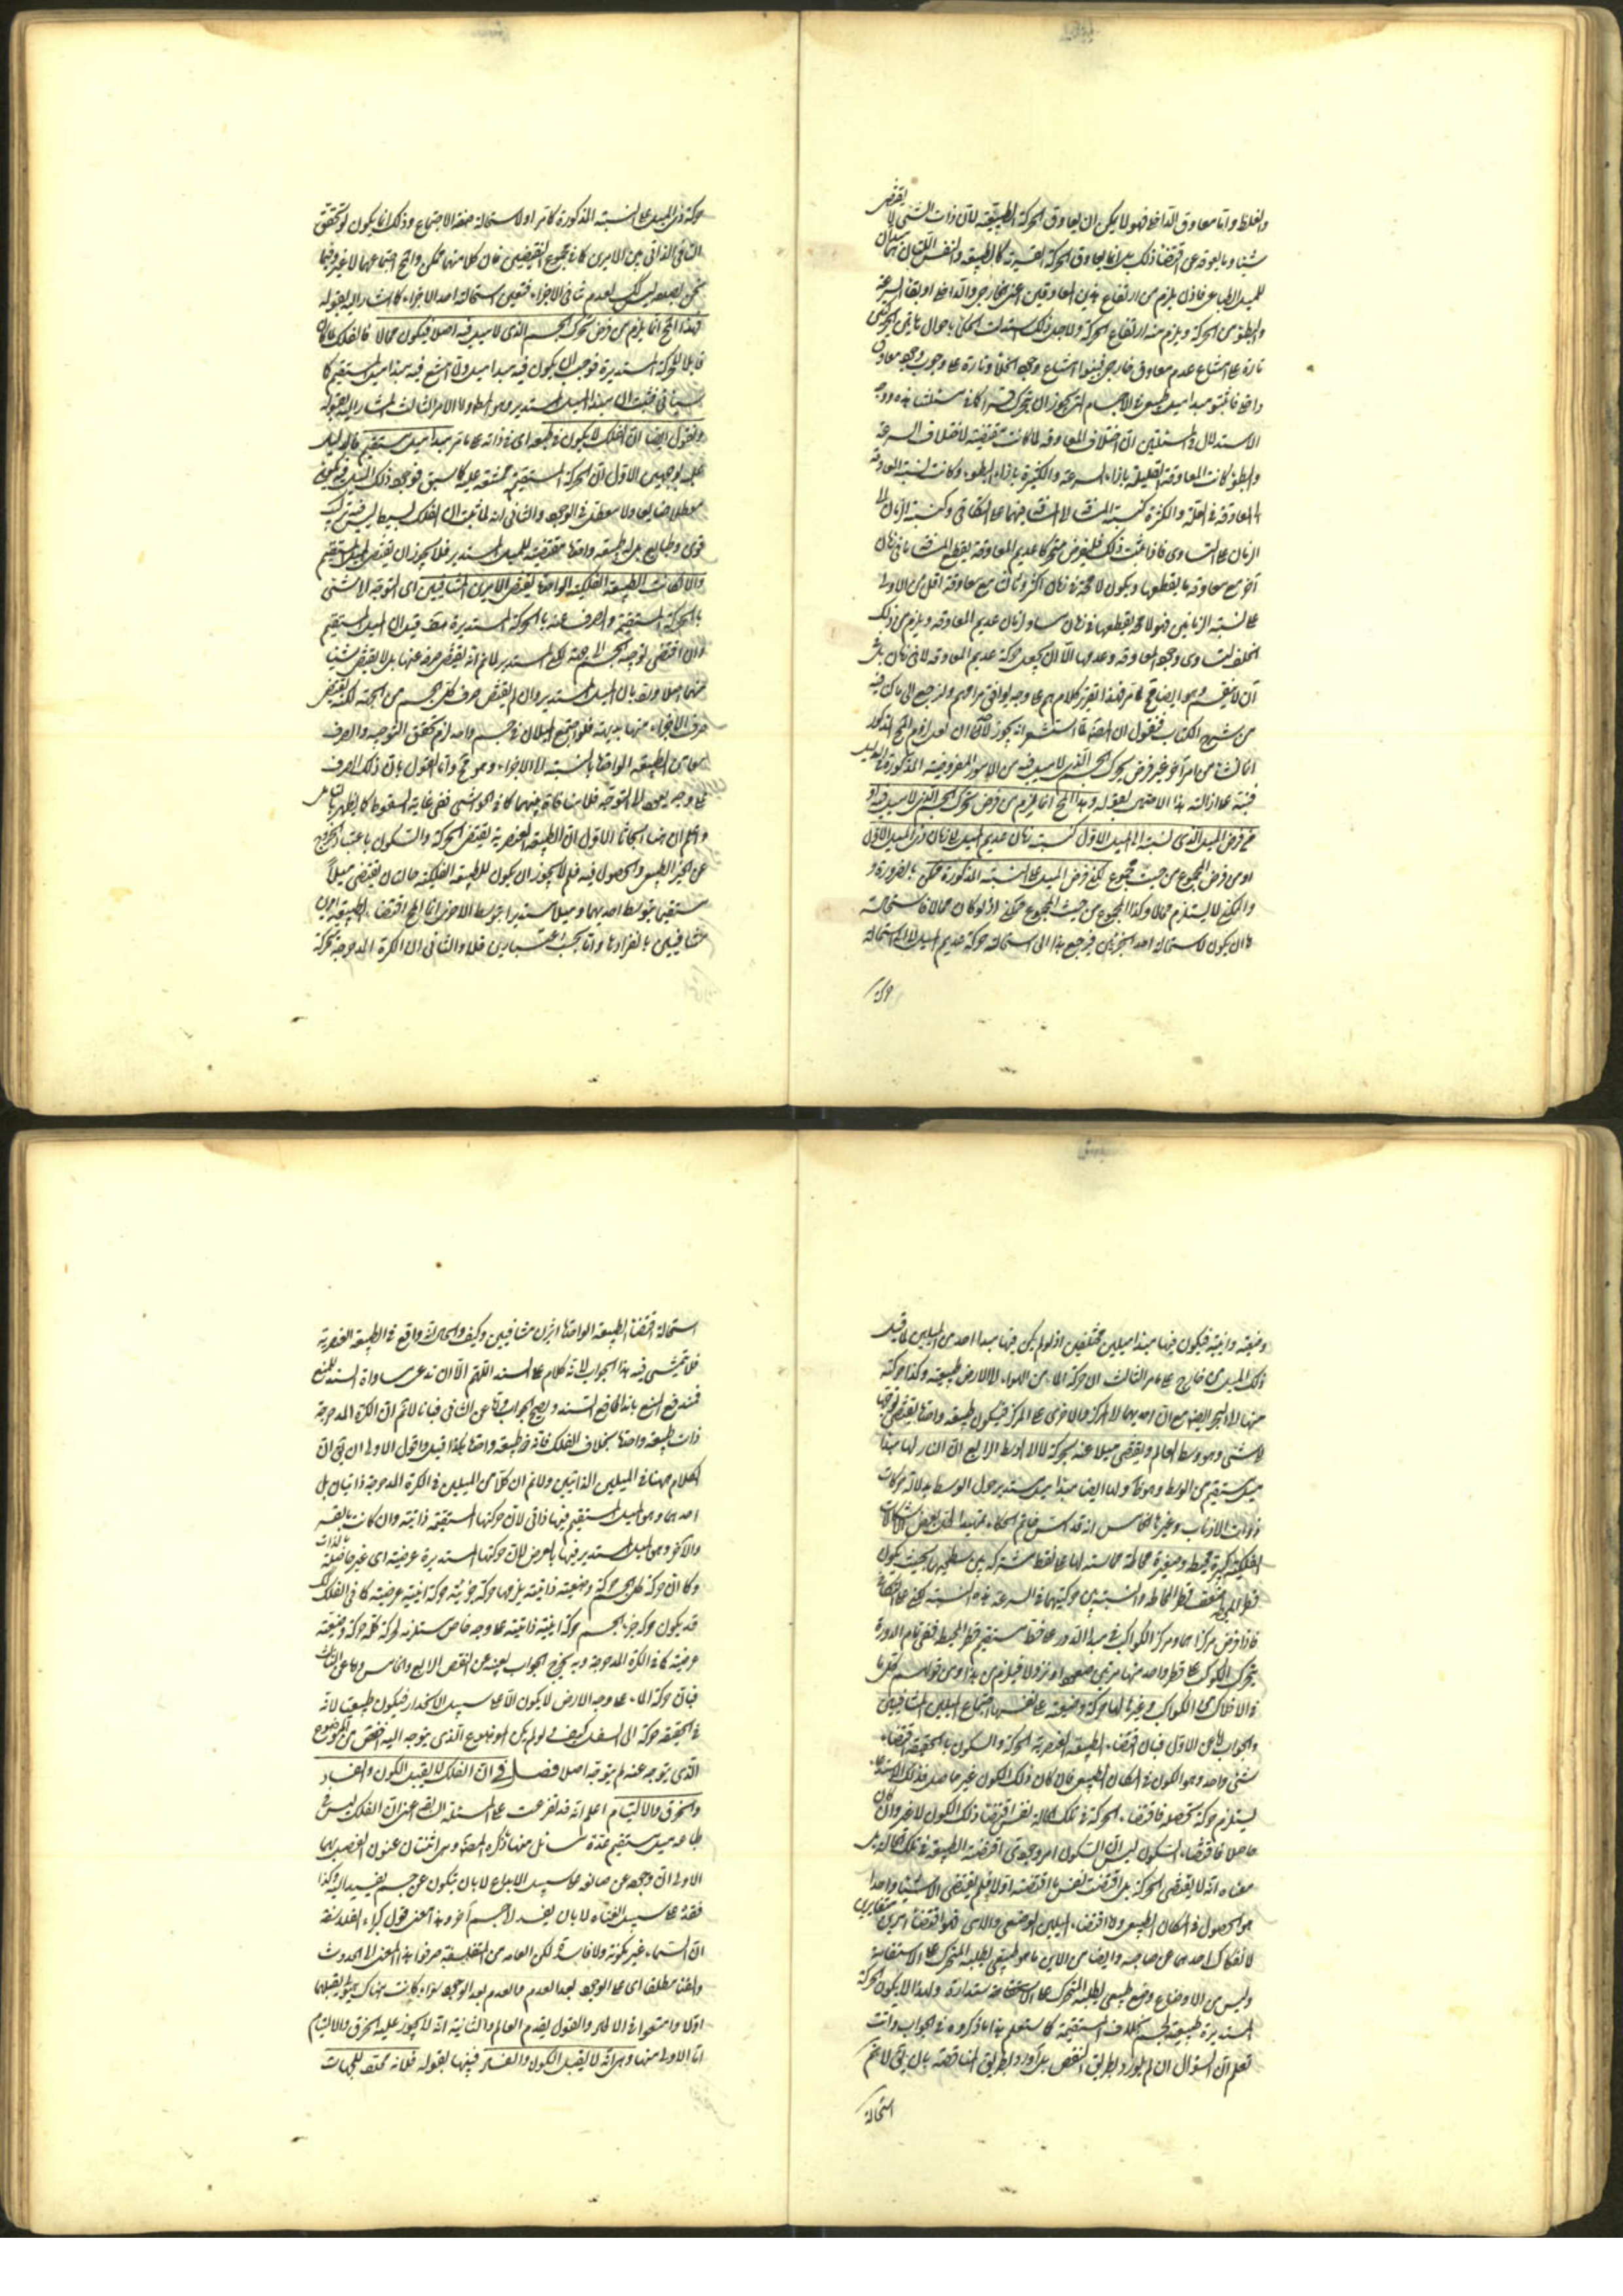 والغلظ واما معاوق الداخل فهو لا يمكن ان يعاوق الحركة الطبيعية لان ذات الشئ لا يقتضى
شيئا وما يعوقه عن اقتضاء ذلك بل انما يعاوق الحركة القسرية كالطبيعة والنفس اللتان هما مبدآن
للميل الطباعى فاذن يلزم من ارتفاع هذين المعاوقين اعنى الخارجى والداخل ارتفاع السرعة
والبطؤ من الحركة ويلزم منه ارتفاع الحركة ولاجل ذلك استدلت الحكماء باحوال هاتين الحركتين
تارة على امتناع عدم معاوق خارجى فبينوا امتناع وجود الخلاء وتارة على وجوب وجود معاوق
داخلى فاثبتوا مبدأ ميل طبيعى فى الاجسام التى يجوز ان يتحرك قسرا كما فى مسئلتنا هذه ووجه
الاستدلال فى المسئلتين ان اختلاف المعاوقة لما كانت مقتضية لاختلاف السرعة
والبطؤ كانت المعاوقة القليلة بازاء السرعة والكثيرة بازاء البطؤ وكانت نسبة المعاوقة
الى المعاوقة فى القلة والكثرة كنسبة المسافة الى المسافة فيهما على التكافى وكنسبة الزمان الى
الزمان على التساوى فاذا ثبت ذلك فليفرض متحركا عديم المعاوقة يقطع المسافة ما فى زمان
آخر مع معاوقة ما يقطعها ويكون لا محالة فى زمان اكثر وثالث مع معاوقة اقل من الاولى
على نسبة الزمانين فهو لا محالة يقطعها فى زمان مساو لزمان عديم المعاوقة ويلزم من ذلك
الخلف لتساوى وجود المعاوقة وعدمها الا ان يجعل حركة عديم المعاوقة لا فى زمان بل فى
آن لا ينقسم وهو ايضا مح لما مر فهذا تقرير كلامهم على وجه يوافق مرامهم ولنرجع الى ما كنا فيه
من شرح الكتاب فنقول ان المصنف لما استشعر انه يجوز لقائل ان يقول لزوم المح المذكور
انما نشأ من امر آخر غير فرض تحرك الجسم الذى لا ميل فيه من الامور المفروضة المذكورة فى الدليل
فنبه على ازالة هذا الاحتمال بقوله وهذا المح انما يلزم من فرض تحرك الجسم الذى لا ميل فيه او
من فرض الميل الذى نسبته الى الميل الاول كنسبة زمان عديم الميل الى زمان ذى الميل الاول
او من فرض المجموع من حيث هو مجموع لكن فرض الميل على النسبة المذكورة ممكن بالضرورة و
والممكن لا يستلزم محالا وكذا المجموع من حيث المجموع ممكن اذ لو كان محالا فاستحالته
اما ان يكون لاستحالة احد الجزئين فيرجع هذا الى استحالة حركة عديم الميل او الى استحالة
حركة
حركة ذى الميل على النسبة المذكورة كما مر او لاستحالة صفة الاجتماع وذلك انما يكون لو تحقق
التنافى الذاتى بين الامرين كما فى مجموع النقيضين فان كلا منهما ممكن والمح اجتماعهما لا غير وفيما
نحن بصدده ليس كك لعدم تنافى الاجزاء فتعين استحالة احد الاجزاء كما اشار اليه بقوله
فهذا المح انما يلزم من فرض تحرك الجسم الذى لا ميل فيه اصلا فيكون محالا فالفلك لما كان
قابلا للحركة المستديرة فوجب ان يكون فيه مبدأ ميل ولما امتنع فيه مبدأ ميل مستقيم كما
سيأتى فثبت ان مبدأ الميل مستدير وهو المط واما الامر الثالث المشار اليه بقوله
ونقول ايضا ان الفلك لا يكون فى طبعه اى فى ذاته على ما مر مبدأ ميل مستقيم فالدليل
عليه بوجهين الاول ان الحركة المستقيمة ممتنعة عليه كما سبق فوجود ذلك الميل فيه يكون
معطلا ضايعا ولا معطل فى الوجود والثانى انه لما ثبت ان الفلك بسيط ليس فيه تركيب
قوى وطبايع بل له طبيعة واحدة مقتضية للميل المستدير فلا يجوز ان يقتضى الميل المستقيم
والا لكانت الطبيعة الفلكية الواحدة يقتضى الامرين المتنافيين اى التوجه الى شئ
بالحركة المستقيمة والصرف عنه بالحركة المستديرة هف قيل ان الميل المستقيم
وان اقتضى توجه الجسم الى جهة لكن المستدير لا نم انه يقتضى صرفه عنها بل لا يقتضى شيئا
منهما اصلا ورد بان الميل المستدير وان لم يقتض صرف كل الجسم من الجهة لكنه يقتضى
صرف الاجزاء عنها بديهة فلو اجتمع الميلان فى جسم واحد لزم تحقق التوجه والصرف
معا من الطبيعة الواحدة بالنسبة الى الاجزاء وهو مح واما القول بان ذلك الصرف
على وجه يعود الى التوجه فلا منافاة بينهما كما فى الحواشى ففى غاية السقوط كما يظهر بالتأمل
واعلم ان هنا ابحاثا الاول ان الطبيعة العنصرية يقتضى الحركة والسكون باعتبار الخروج
عن الحيز الطبيعى والحصول فيه فلم لا يجوز ان يكون للطبيعة الفلكية حالتان يقتضى ميلا
مستقيما بتوسط احديهما وميلا مستديرا بتوسط الاخرى انما المح اقتضاء الطبيعة امرين
متنافيين بانفرادها واما بحسب اعتبارين فلا والثانى ان الكرة المدحرجة تحركه
وضعية واينية فيكون فيها مبدأ ميلين مختلفين اذ لو لم يكن فيها مبدأ احدى الميلين لما قبل
ذلك الميل من خارج على ما مر الثالث ان حركة الماء من الهواء الى الارض طبيعية وكذا حركته
منها الى البحر ايضا مع ان احديهما الى المركز والاخرى على المركز فيكون طبيعة واحدة يقتضى توجها
الى شئ وهو وسط العالم ويقتضى ميلا عنه بحركة لا الى الوسط الرابع ان النار لها مبدأ
ميل مستقيم من الوسط وهو ظ ولها ايضا مبدأ ميل مستدير حول الوسط بدلالة حركات
ذوات الاذناب وغيرها الخامس انه قد استس خاتم الحكماء تمهيدا لحل بعض الاشكالات
الفلكية كبيرة محيطة وصغيرة محاطة مماسة لها على نقطة مشتركة بين سطحيهما بحيث يكون
قطر المحيط ضعف قطر المحاطة والنسبة بين حركتيهما فى السرعة هذه النسبة لكن على التكافى
فاذا فرض مركزاهما ومركز الكواكب فى مبدأ الدور على خط مستقيم قطر المحيط ففى تمام الدورة
يتحرك الكوكب على قطر واحد منها مرتين صعودا ونزولا فيلزم من هذا
فى الافلاك من الكواكب وغيرها لها حركة وضعية على نفسها اجتماع الميلين المتنافيين
والجواب اما عن الاول فبان اقتضاء الطبيعة العنصرية الحركة والسكون بالحقيقة اقتضاء
شئ واحد وهو الكون فى المكان الطبيعى فان كان ذلك الكون غير حاصل فذلك الاستدعاء
يستلزم حركة تحصله فاقتضاء الحركة فى تلك الحالة نفس اقتضاء ذلك الكون لا غير وان كان
حاصلا فاقتضاء السكون ليس لان السكون امر وجودى اقتضته الطبيعة فى تلك الحالة بل
معناه انه لا يقتضى الحركة بل اقتضت نفس ما اقتضته اولا فلم يقتضى الا شيئا واحدا
هو الحصول فى المكان الطبيعى واما اقتضاء الميلين الوضعى والاينى فهو اقتضاء امرين متغايرين
لانفكاك احدهما عن صاحبه وايضا من الاين ما هو طبيعى يطلبه المتحرك على الاستقامة
وليس من الاوضاع وضع طبيعى يطلبه المتحرك على الاستدارة ولهذا لا يكون الحركة
المستديرة طبيعية لجسم بخلاف المستقيمة كما ستعلم هذا ما ذكروه فى الجواب وانت
تعلم ان السؤال ان لم يورد بطريق النقض بل اورد بطريق المناقضة بان يق لا نم
استحالة
استحالة اقتضاء الطبيعة الواحدة اثرين متنافيين وكيف والحال انه واقع فى الطبيعة العنصرية
فلا يتمشى فيه هذا الجواب لانه كلام على السند اللهم الا ان تدعى مساواة السند للمنع
فيندفع المنع باندفاع السند ويصح الجواب واما عن الثانى فبانا لا نم ان الكرة المدحرجة
ذات طبيعة واحدة بخلاف الفلك فانه ذو طبيعة واحدة هكذا قيل واقول الاولى ان يق ان
الكلام ههنا فى الميلين الذاتيين ولا نم ان كلا من الميلين فى الكرة المدحرجة ذاتيان بل
احدهما وهو الميل المستقيم فيها ذاتى لان حركتها المستقيمة ذاتية وان كانت بالقسر
والآخر وهو الميل المستدير فيها بالعرض لان حركتها المستديرة عرضية اى غير حاصلة بالذات
وكما ان حركة كل الجسم حركة وضعية ذاتية يلزمها حركة جزئية حركة اينية عرضية كما فى الفلك كك
قد يكون حركة جزء الجسم حركة اينية ذاتية على وجه خاص مستلزمة لحركة كله حركة وضعية
عرضية كما فى الكرة المدحرجة وبه يخرج الجواب بعينه عن النقض الرابع والخامس واما عن الثالث
فبان حركة الماء على وجه الارض لا يكون الا على سبيل الانحدار فيكون طبيعيا لانه
فى الحقيقة حركة الى السفل كيف لو لم يكن الموضوع الذى يتوجه اليه اخفض من الموضوع
الذى يتوجه عنه لم يتوجه اصلا فصل فى ان الفلك لا يقبل الكون والفساد
والخرق والالتيام اعلم انه قد تفرعت على المسئلة السابقة اعنى ان الفلك ليس فى
طباعه ميل مستقيم عدة مسائل منها ما ذكره المصنف وهى اثنتان عنون الفصل بهما
الاولى ان وجوده عن صانعه على سبيل الابداع لا بان يتكون عن جسم يفسد اليه وكذا
فقده على سبيل الفناء لا بان يفسد الى جسم آخر وهذا معنى قول كبراء الفلاسفة
ان السماء غير مكونة ولا فاسدة لكن العامة من المتفلسفة صرفوا هذا المعنى الى الحدوث
والفناء مطلقا اى على الوجود بعد العدم والعدم بعد الوجود سواء كانت هناك هيولى يقبلهما
اولا وامتنعوا فى الالحاد والقول بقدم العالم والثانية انه لا يجوز عليه الخرق والالتيام
اما الاولى منها وهى انه لا يقبل الكون والفساد فبينها بقوله فلانه محدد للجهات